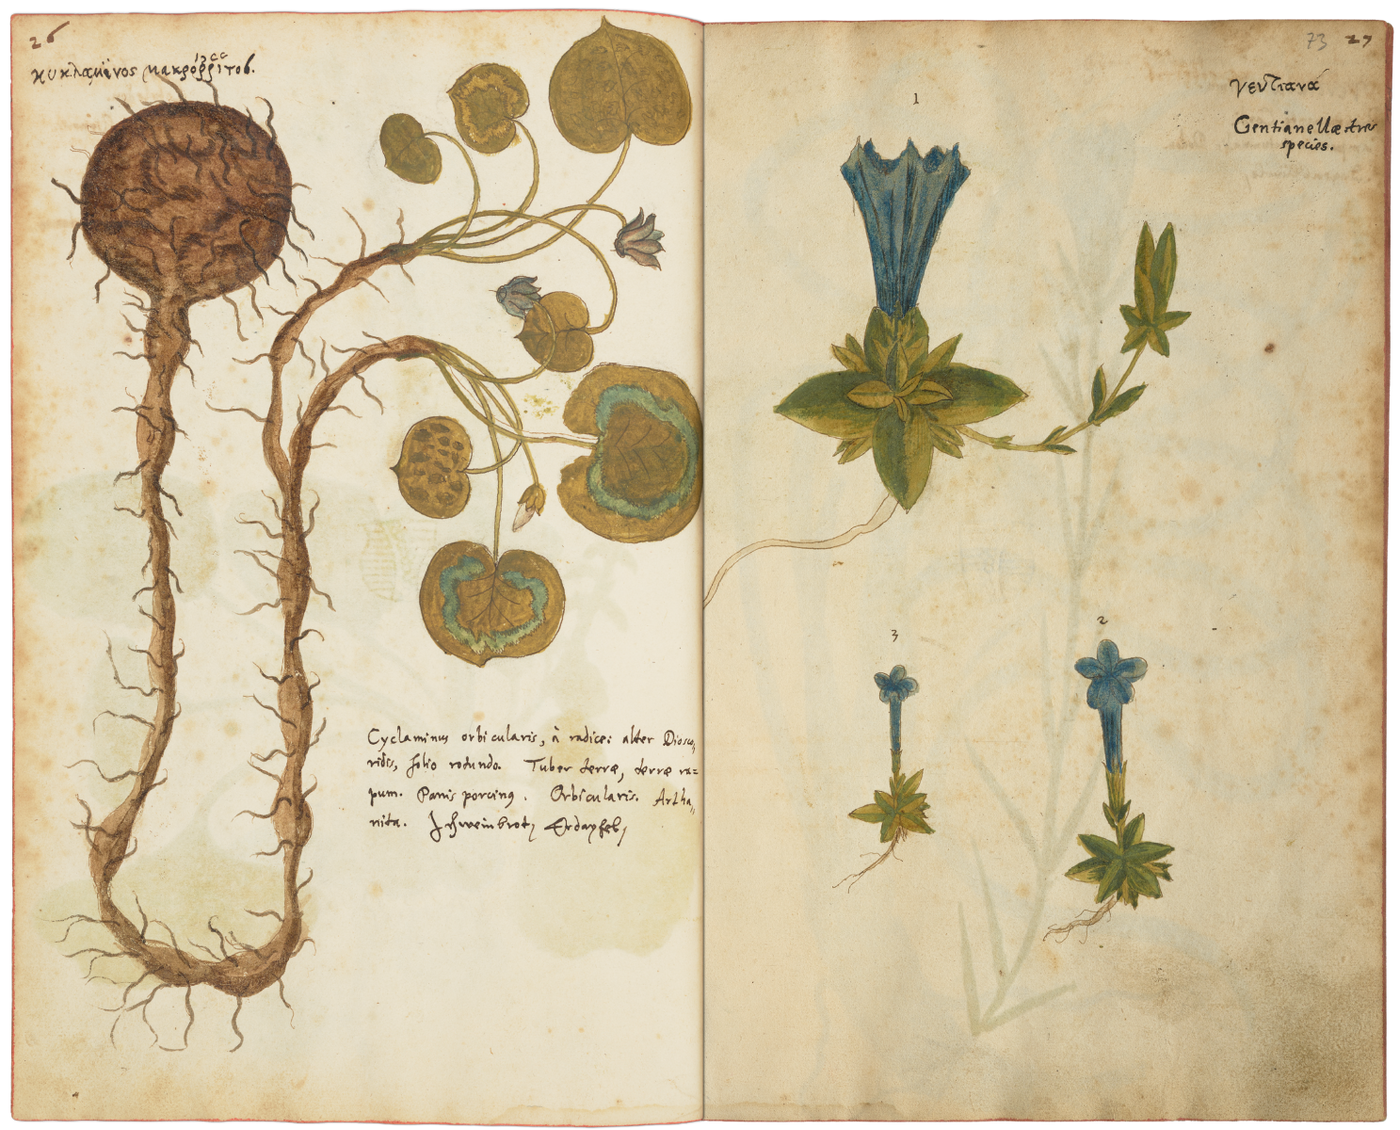 26
κυκλαμῖνος μακρόρριζος.
Cyclaminus orbicularis, à radice: alter Diosco„
ridis, folio rotundo. Tuber terræ, terræ ra=
pum. Panis porcinus. Orbicularis. Artha„
nita. Schweinbrot, Erdapfel,
73 27
γεντιανά
Gentianellæ tres
species.
1
3
2